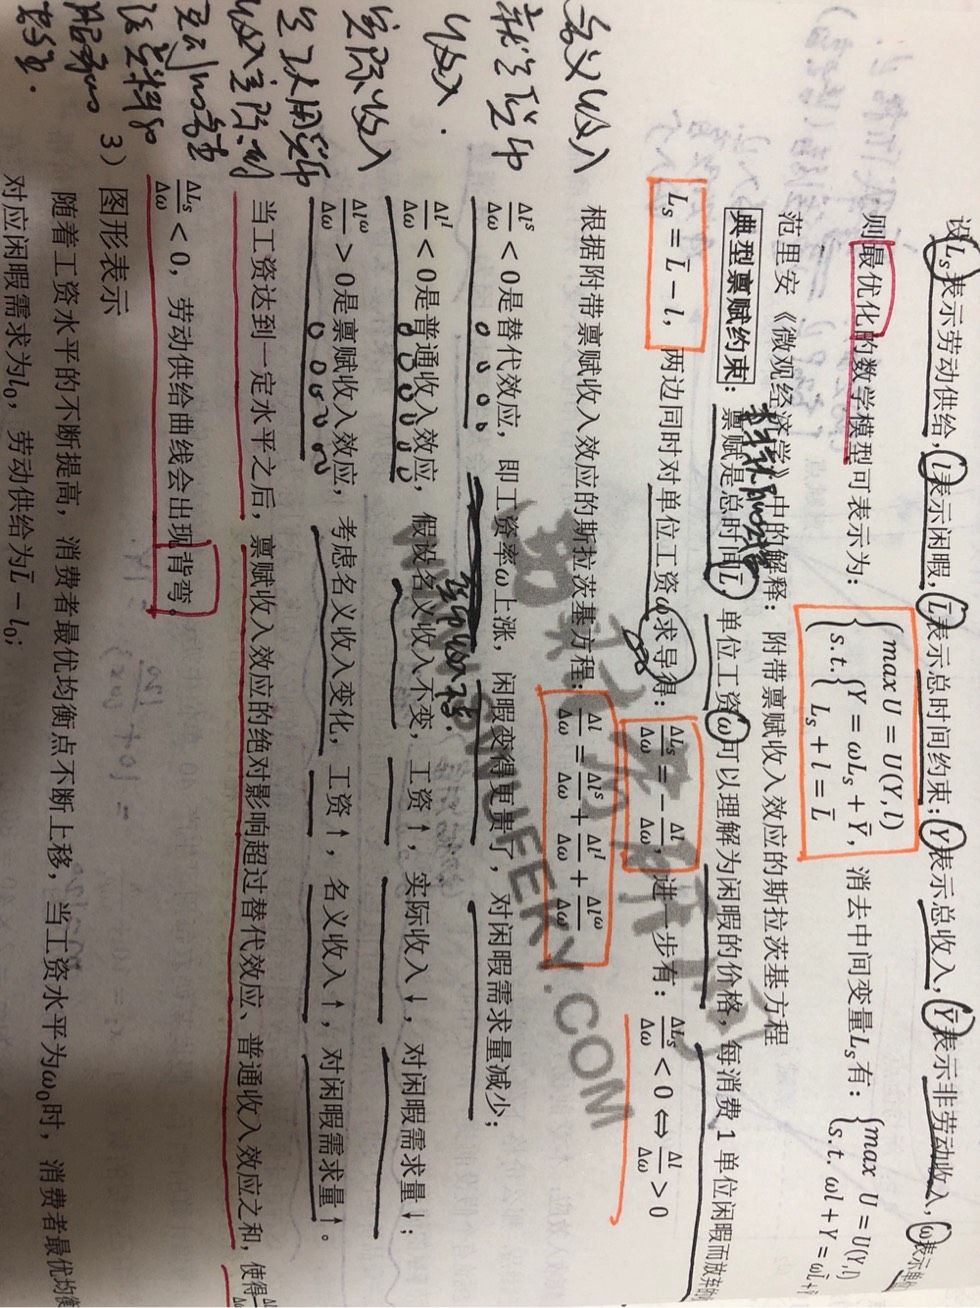 设Ls表示劳动供给，l表示闲暇，L̄表示总时间约束；Y表示总收入，Ȳ表示非劳动收入，ω表示单位
则最优化的数学模型可表示为：{max U = U(Y,l) s.t.{Y = ωLs + Ȳ, Ls + l = L̄，消去中间变量Ls有：{max U = U(Y,l) s.t. ωl + Y = ωL̄ + Ȳ
范里安《微观经济学》中的解释：附带禀赋收入效应的斯拉茨基方程
典型禀赋约束：禀赋是总时间L̄，单位工资ω可以理解为闲暇的价格，每消费1单位闲暇而放弃的
Ls = L̄ − l，两边同时对单位工资ω求导得：ΔLs/Δω = −Δl/Δω，进一步有：ΔLs/Δω < 0 ⇔ Δl/Δω > 0
根据附带禀赋收入效应的斯拉茨基方程：Δl/Δω = Δlˢ/Δω + Δlᴵ/Δω + Δlω/Δω
Δlˢ/Δω < 0是替代效应，即工资率ω上涨，闲暇变得更贵了，对闲暇需求量减少；
Δlᴵ/Δω < 0是普通收入效应，假设名义收入不变，工资↑，实际收入↓，对闲暇需求量↓；
Δlω/Δω > 0是禀赋收入效应，考虑名义收入变化，工资↑，名义收入↑，对闲暇需求量↑。
当工资达到一定水平之后，禀赋收入效应的绝对影响超过替代效应、普通收入效应之和，使得
ΔLs/Δω < 0，劳动供给曲线会出现背弯。
3）图形表示
随着工资水平的不断提高，消费者最优均衡点不断上移，当工资水平为ω₀时，消费者最优均衡
对应闲暇需求为l₀，劳动供给为L̄ − l₀；
名义收入
就是货币
收入．
实际收入
是以用货币
收入实际
WWW.DWUFEKY.COM